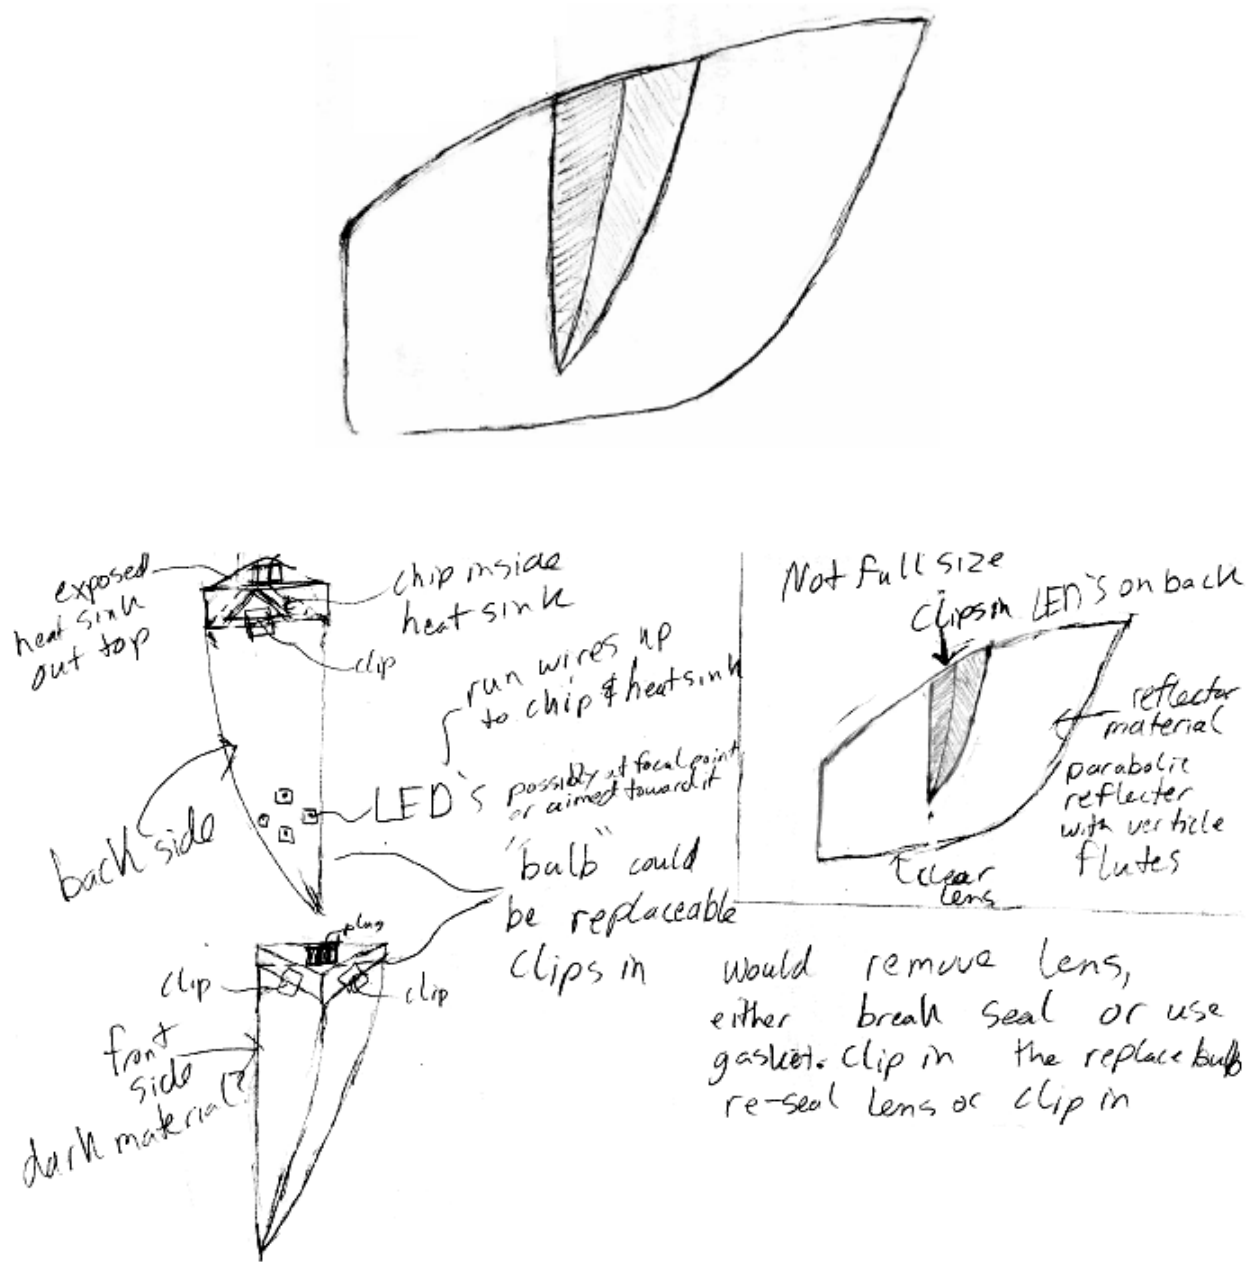 exposed
heat sink
out top
chip inside
heat sink
clip
run wires up
to chip & heatsink
LED's
possibly at focal point
or aimed toward it
back side
"bulb" could
be replaceable
clips in
plug
clip
clip
front
side
dark material?
Not full size
Clips in LED's on back
reflector
material
parabolic
reflecter
with verticle
flutes
clear
lens
would remove lens,
either break seal or use
gasket. Clip in the replace bulb
re-seal lens or clip in